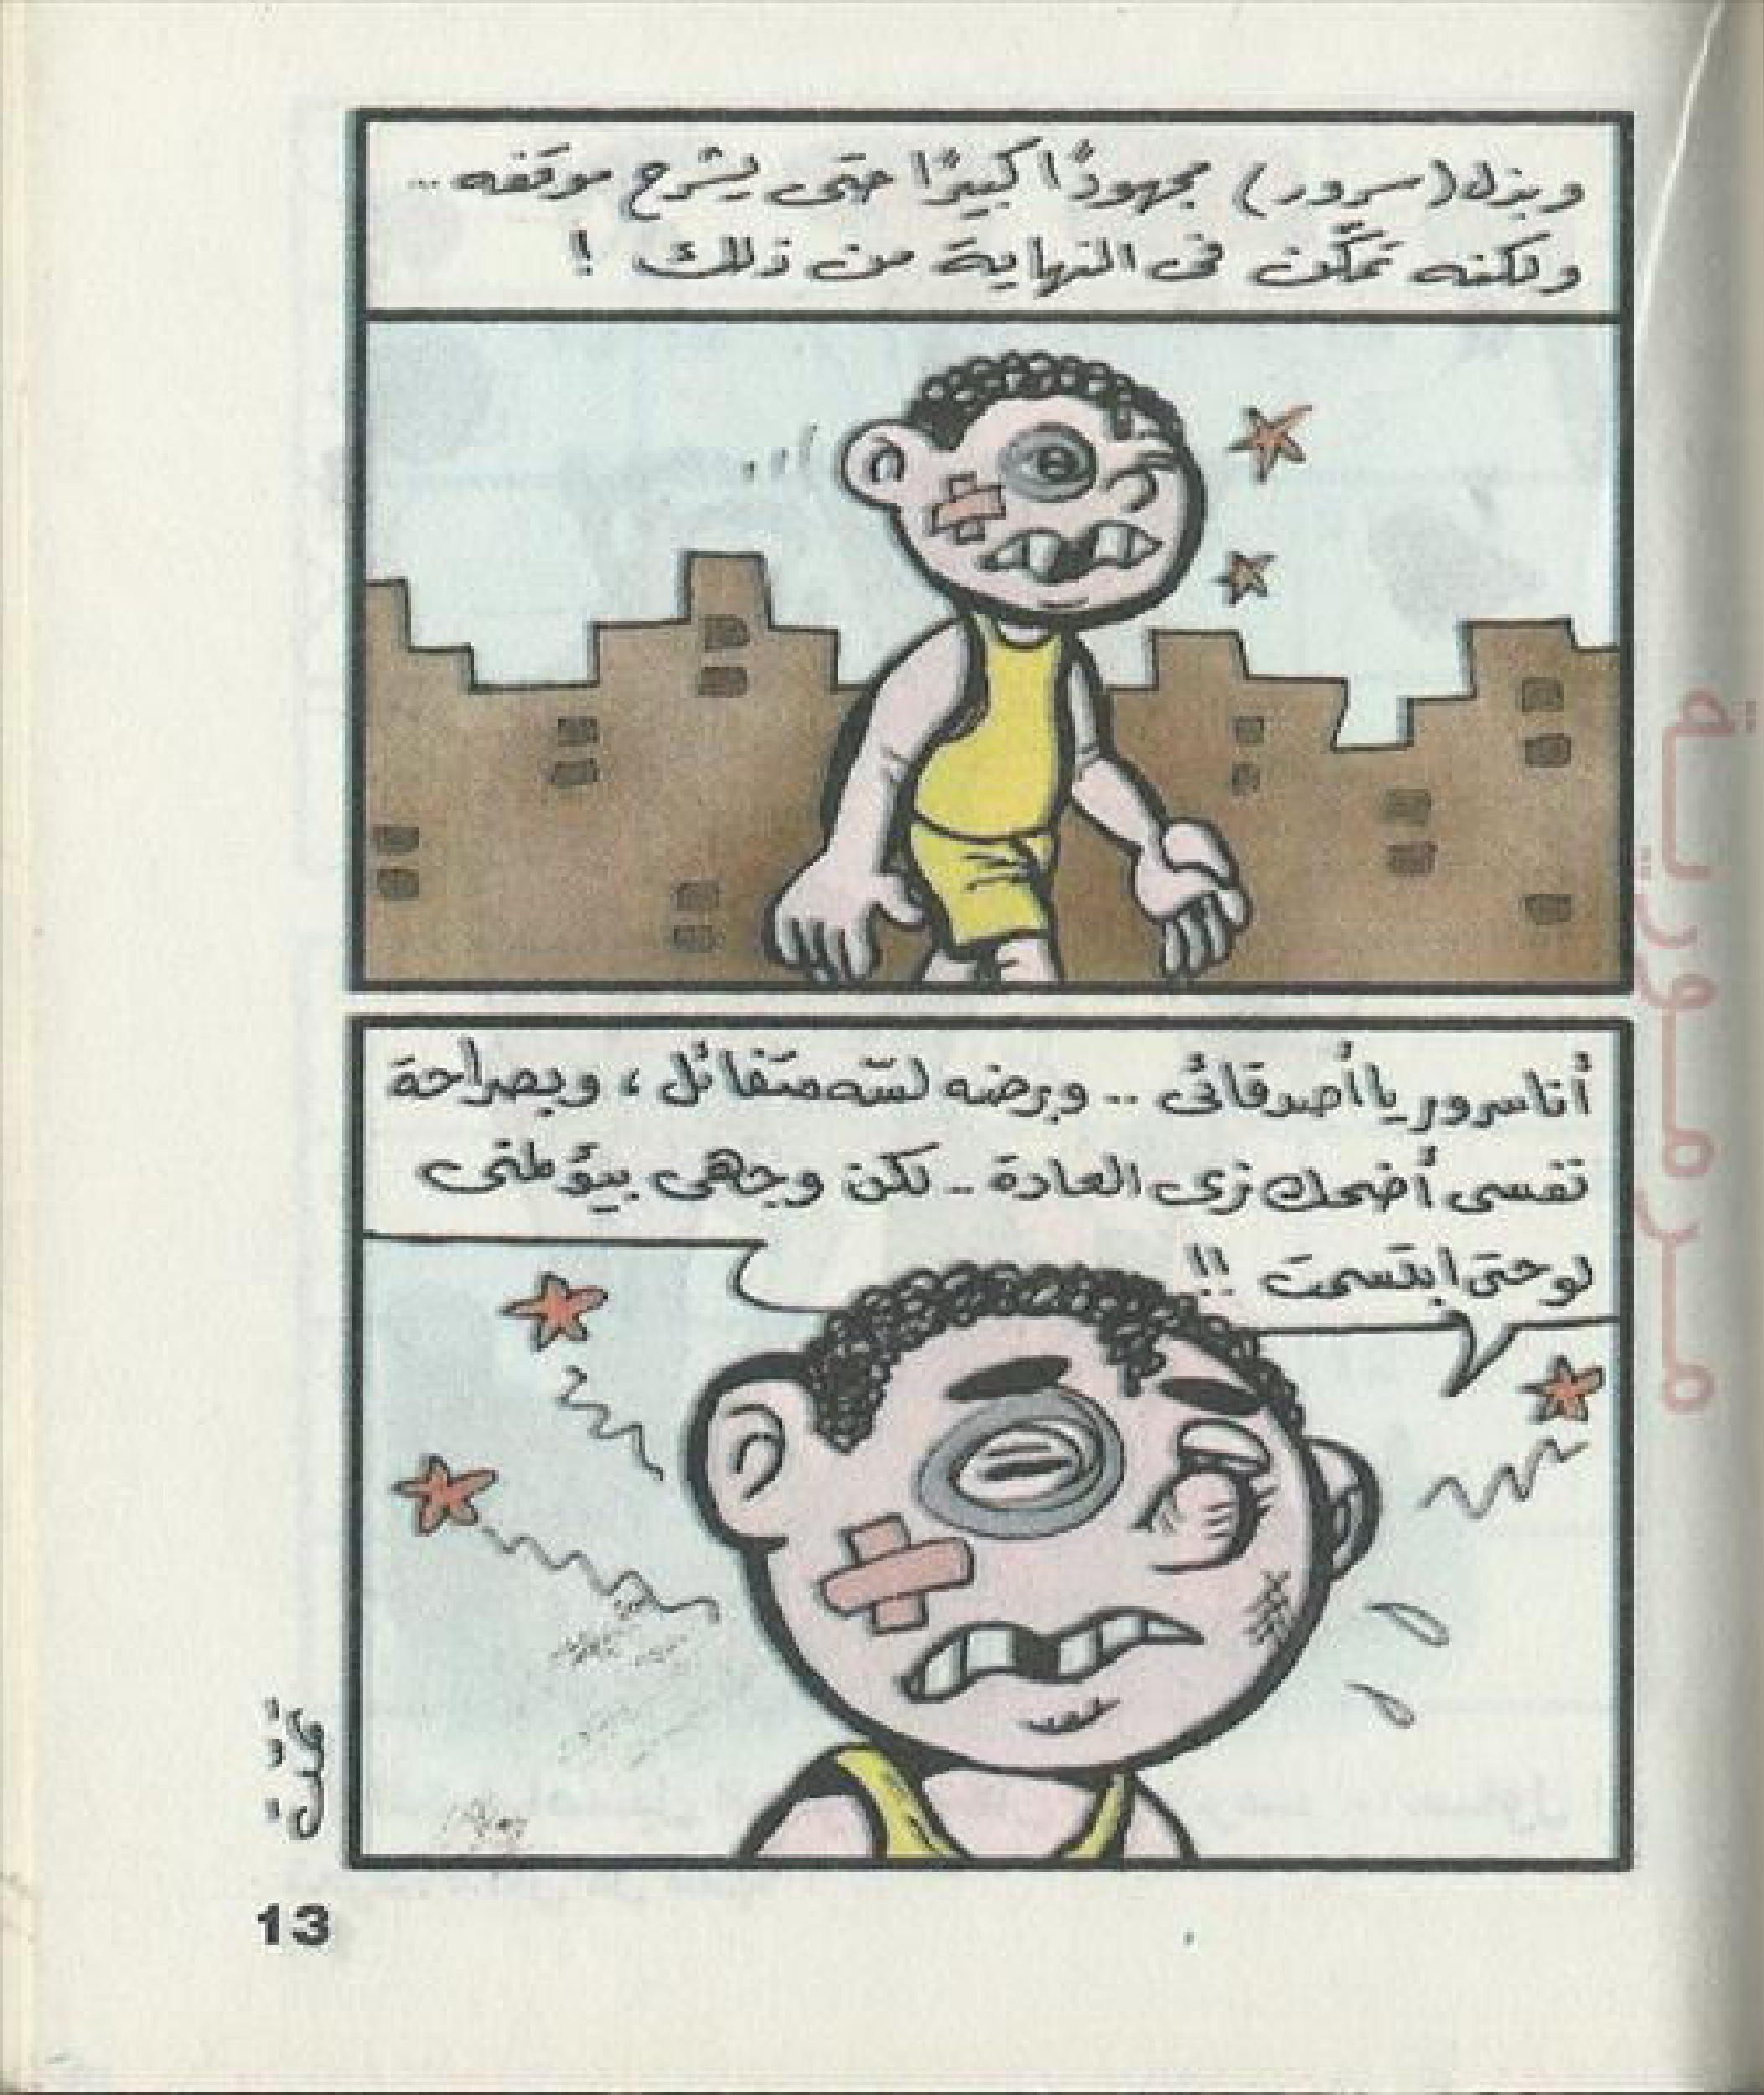 وبذل (سرور) مجهودًا كبيرًا حتى يشرح موقفه ..
ولكنه تمكّن فى النهاية من ذلك !
أنا سرور يا أصدقائى .. وبرضه لسّه متفائل ، وبصراحة
نفسى أضحك زى العادة .. لكن وجهى بيؤلمنى
لو حتى ابتسمت !!
13
مرمورية